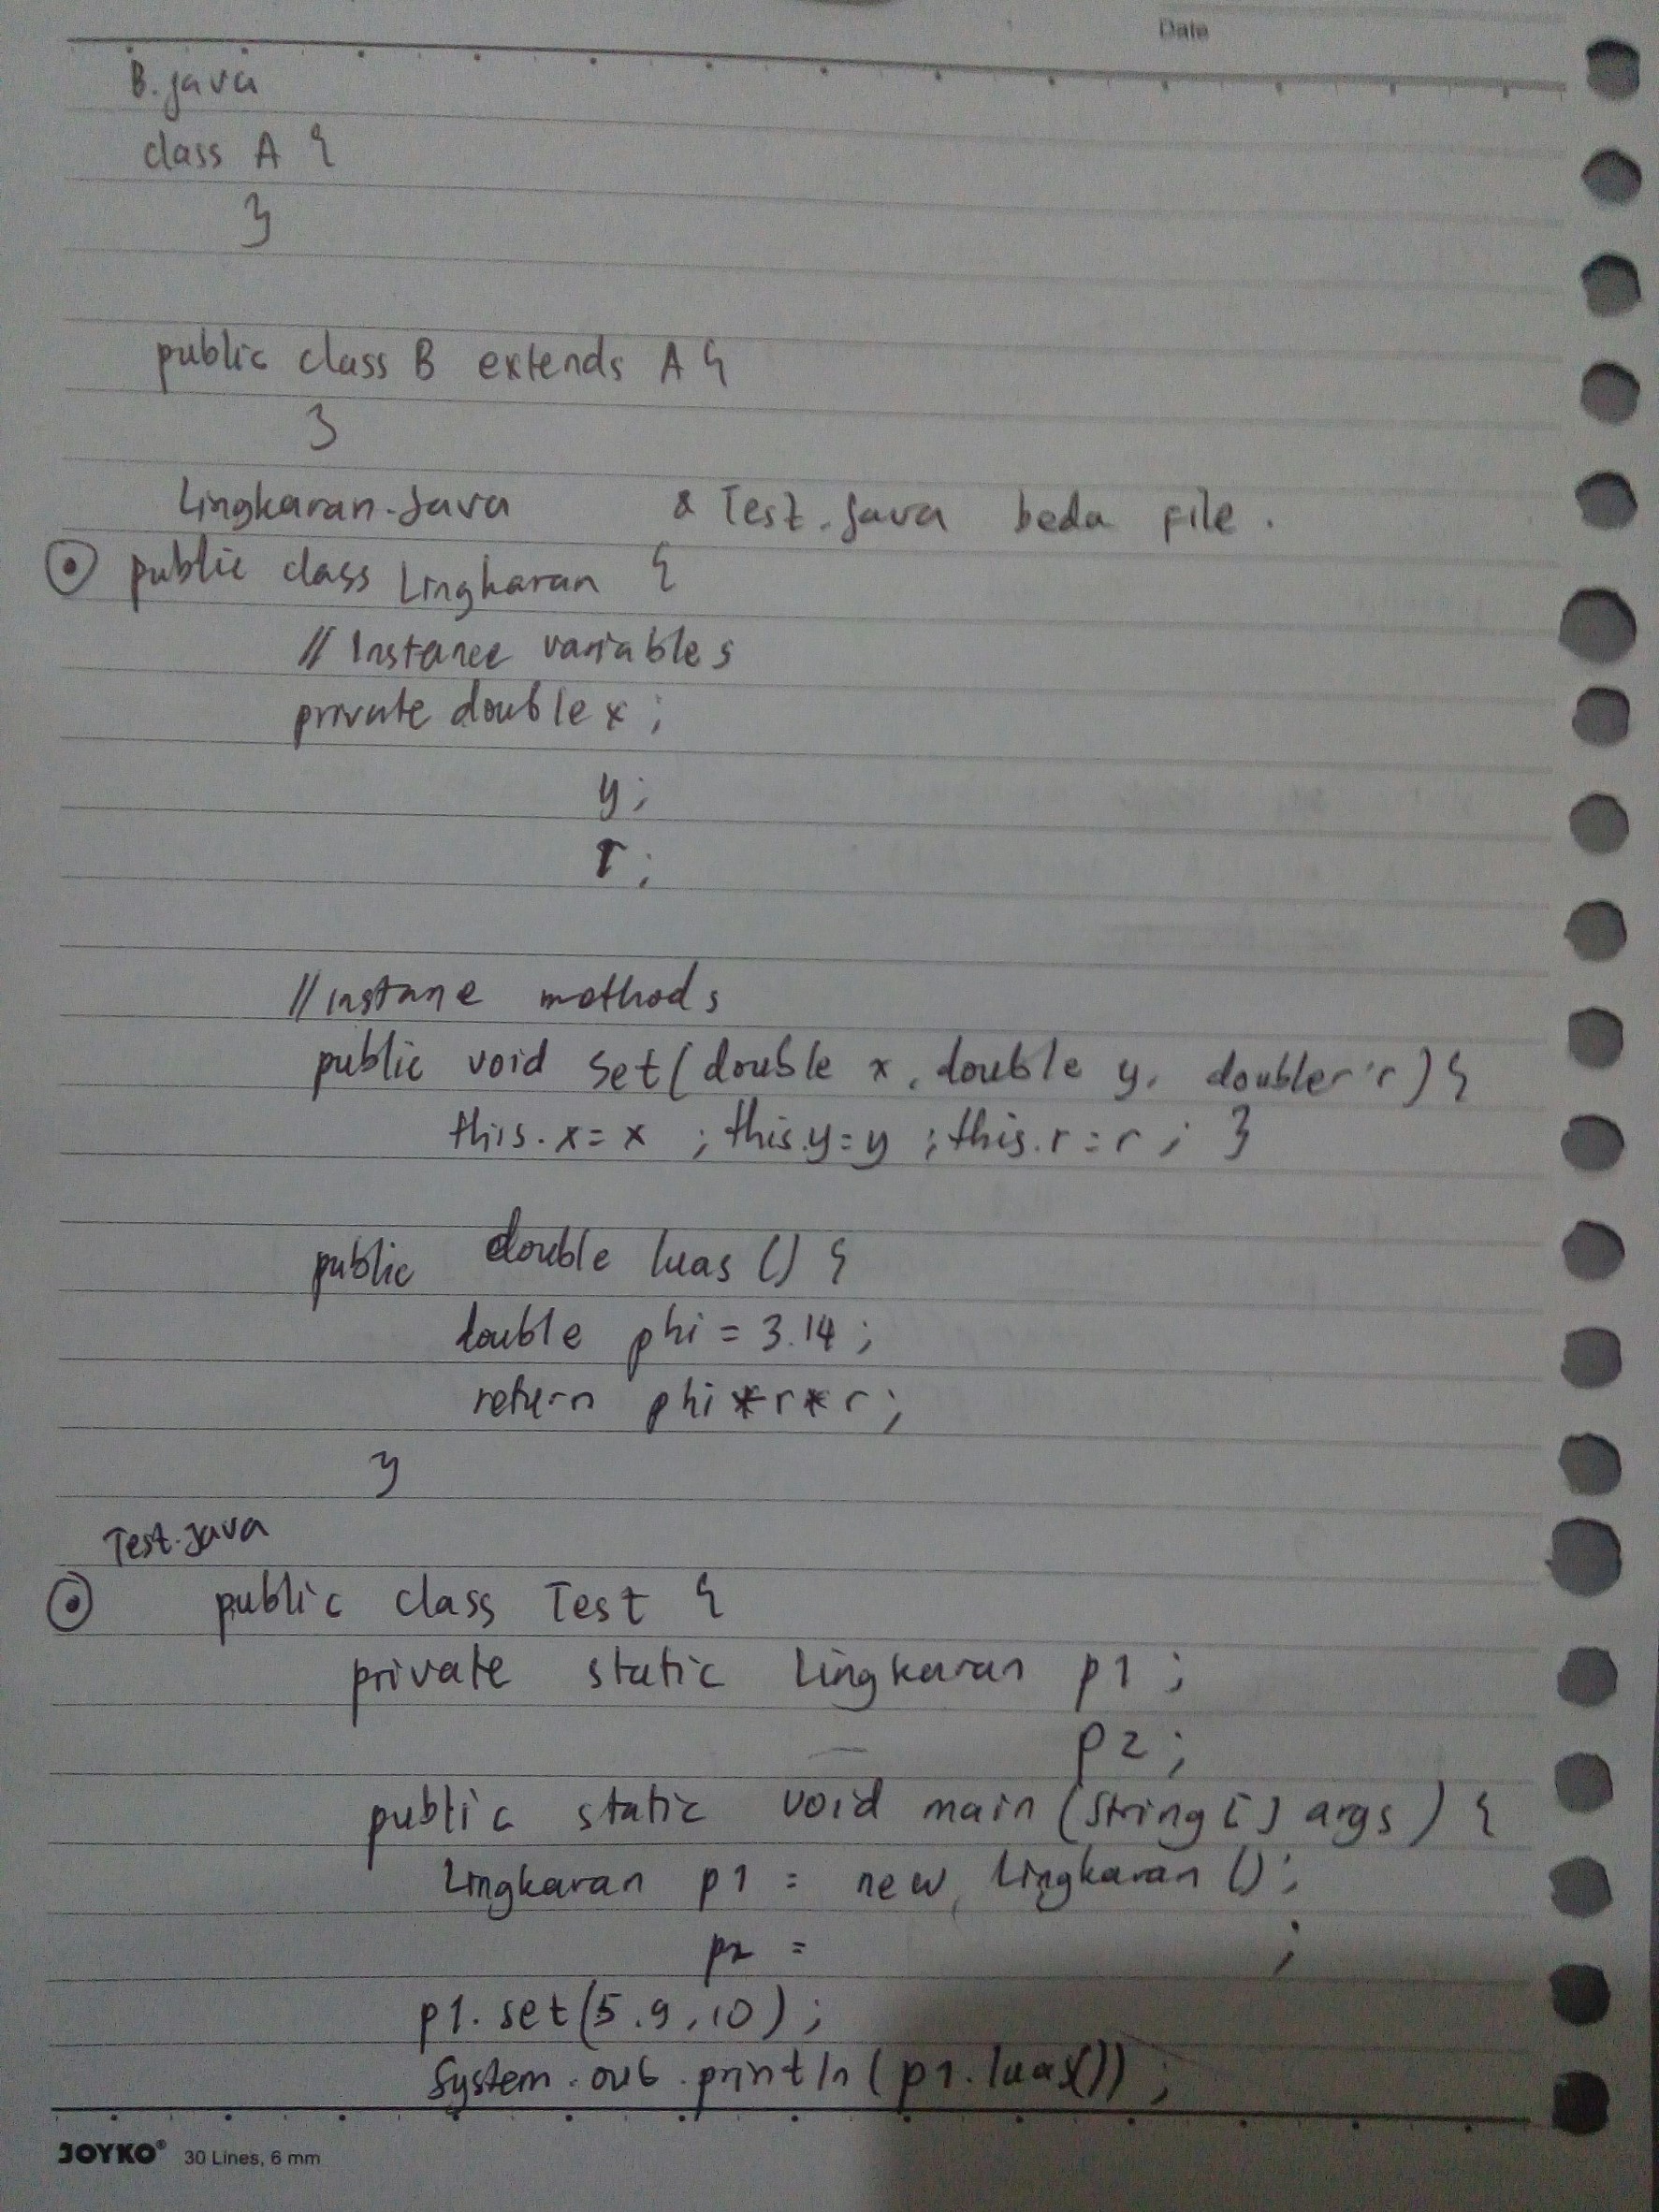 Date
B.java
class A {
}
public class B extends A {
}
Lingkaran.java & Test.java beda file.
public class Lingkaran {
// Instance variables
private double x;
y;
r;
// instane methods
public void set(double x, double y, doubler r) {
this.x=x ; this.y=y ; this.r=r ; }
public double luas () {
double phi = 3.14 ;
return phi*r*r ;
}
Test.java
public class Test {
private static Lingkaran p1 ;
p2 ;
public static void main (String [] args) {
Lingkaran p1 = new Lingkaran () ;
p2 = ;
p1. set(5.9,10) ;
System.out.println(p1.luas()) ;
JOYKO® 30 Lines, 6 mm